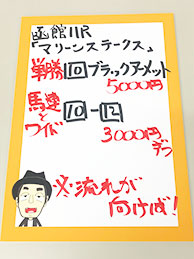 函館11R
『マリーンステークス』
単勝 10 ブラックアーメット
5000円
馬連とワイド 10-12
3000円ずつ
※流れが
向けば!